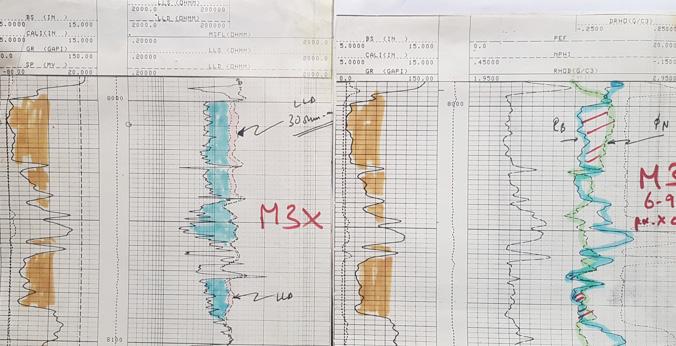 LLS (OHMM)
2000.0 200000.
BS (IN. )
5.0000 15.000
LLD (OHMM)
2000.0 200000.
CALI(IN. )
5.0000 15.000
MSFL(OHMM)
.20000 2000.0
GR (GAPI)
0.0 150.00
LLS (OHMM)
.20000 2000.0
SP (MV. )
-80.00 20.000
LLD (OHMM)
.20000 2000.0
8000
LLD
30 ohm-m
M3X
LLD
8100
DRHO(G/C3)
-.2500 .2500
BS (IN. )
5.0000 15.000
PEF
0.0 20.000
CALI(IN. )
5.0000 15.000
NPHI
.45000 -.1500
GR (GAPI)
0.0 150.00
RHOB(G/C3)
1.9500 2.9500
8000
ρB
φN
M3
6-9